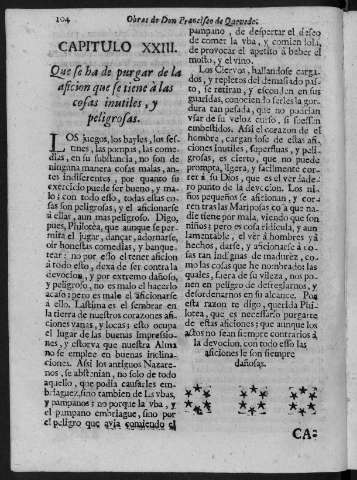 104 Obras de Don Francisco de Quevedo.
CAPITULO XXIII.
Que se ha de purgar de la
aficion que se tiene à las
cosas inutiles, y
peligrosas.
LOS juegos, los bayles, los fes-
tines, las pompas, las come-
dias, en su substancia, no son de
ninguna manera cosas malas, an-
tes indiferentes, por quanto su
exercicio puede ser bueno, y ma-
lo: con todo esso, todas estas co-
sas son peligrosas, y el aficionarse
à ellas, aun mas peligroso. Digo,
pues, Philotèa, que aunque se per-
mita el jugar, dançar, adornarse,
oir honestas comedias, y banque-
tear: no por esso el tener aficion
à todo esto, dexa de ser contra la
devocion, y por extremo dañoso,
y peligroso, no es malo el hacerlo
acaso; pero es malo el aficionarse
à ello. Lastima es el sembrar en
la tierra de nuestros corazones afi-
ciones vanas, y locas: esto ocupa
el lugar de las buenas impressio-
nes, y estorva que nuestra Alma
no se emplee en buenas inclina-
ciones. Assi los antiguos Nazare-
nos, se abstenian, no solo de todo
aquello, que podia causarles em-
briaguez, sino tambien de las vbas,
y pampanos: no porque la vba, y
el pampano embriague, sino por
el peligro que avia comiendo el
pampano, de despertar el deseo
de comer la vba, y comiendola,
de provocar el apetito à beber el
mosto, y el vino.
Los Ciervos, hallandose carga-
dos, y repletos del demasiado pas-
to, se retiran, y esconden en sus
guaridas, conociendo serles la gor-
dura tan pesada, que no podrian
vsar de su veloz curso, si fuessen
embestidos. Assi el corazon de el
hombre, cargandose de estas afi-
ciones inutiles, superfluas, y peli-
grosas, es cierto, que no puede
prompta, ligera, y facilmente cor-
rer à su Dios, que es el verdade-
ro punto de la devocion. Los ni-
ños pequeños se aficionan, y cor-
ren tras las Mariposas cosa que na-
die tiene por mala, viendo que son
niños; pero es cosa ridicula, y aun
lamentable, el ver à hombres yà
hechos, darse, y aficionarse à co-
sas tan indignas de madurez, co-
mo las cosas que he nombrado; las
quales, fuera de su vileza, nos po-
nen en peligro de desreglarnos, y
desordenarnos en su alcance. Por
esta razon te digo, querida Phi-
lotea, que es necessario purgarte
de estas aficiones; que aunque los
actos no sean siempre contrarios à
la devocion, con todo esso las
aficiones le son siempre
dañosas.
CA-